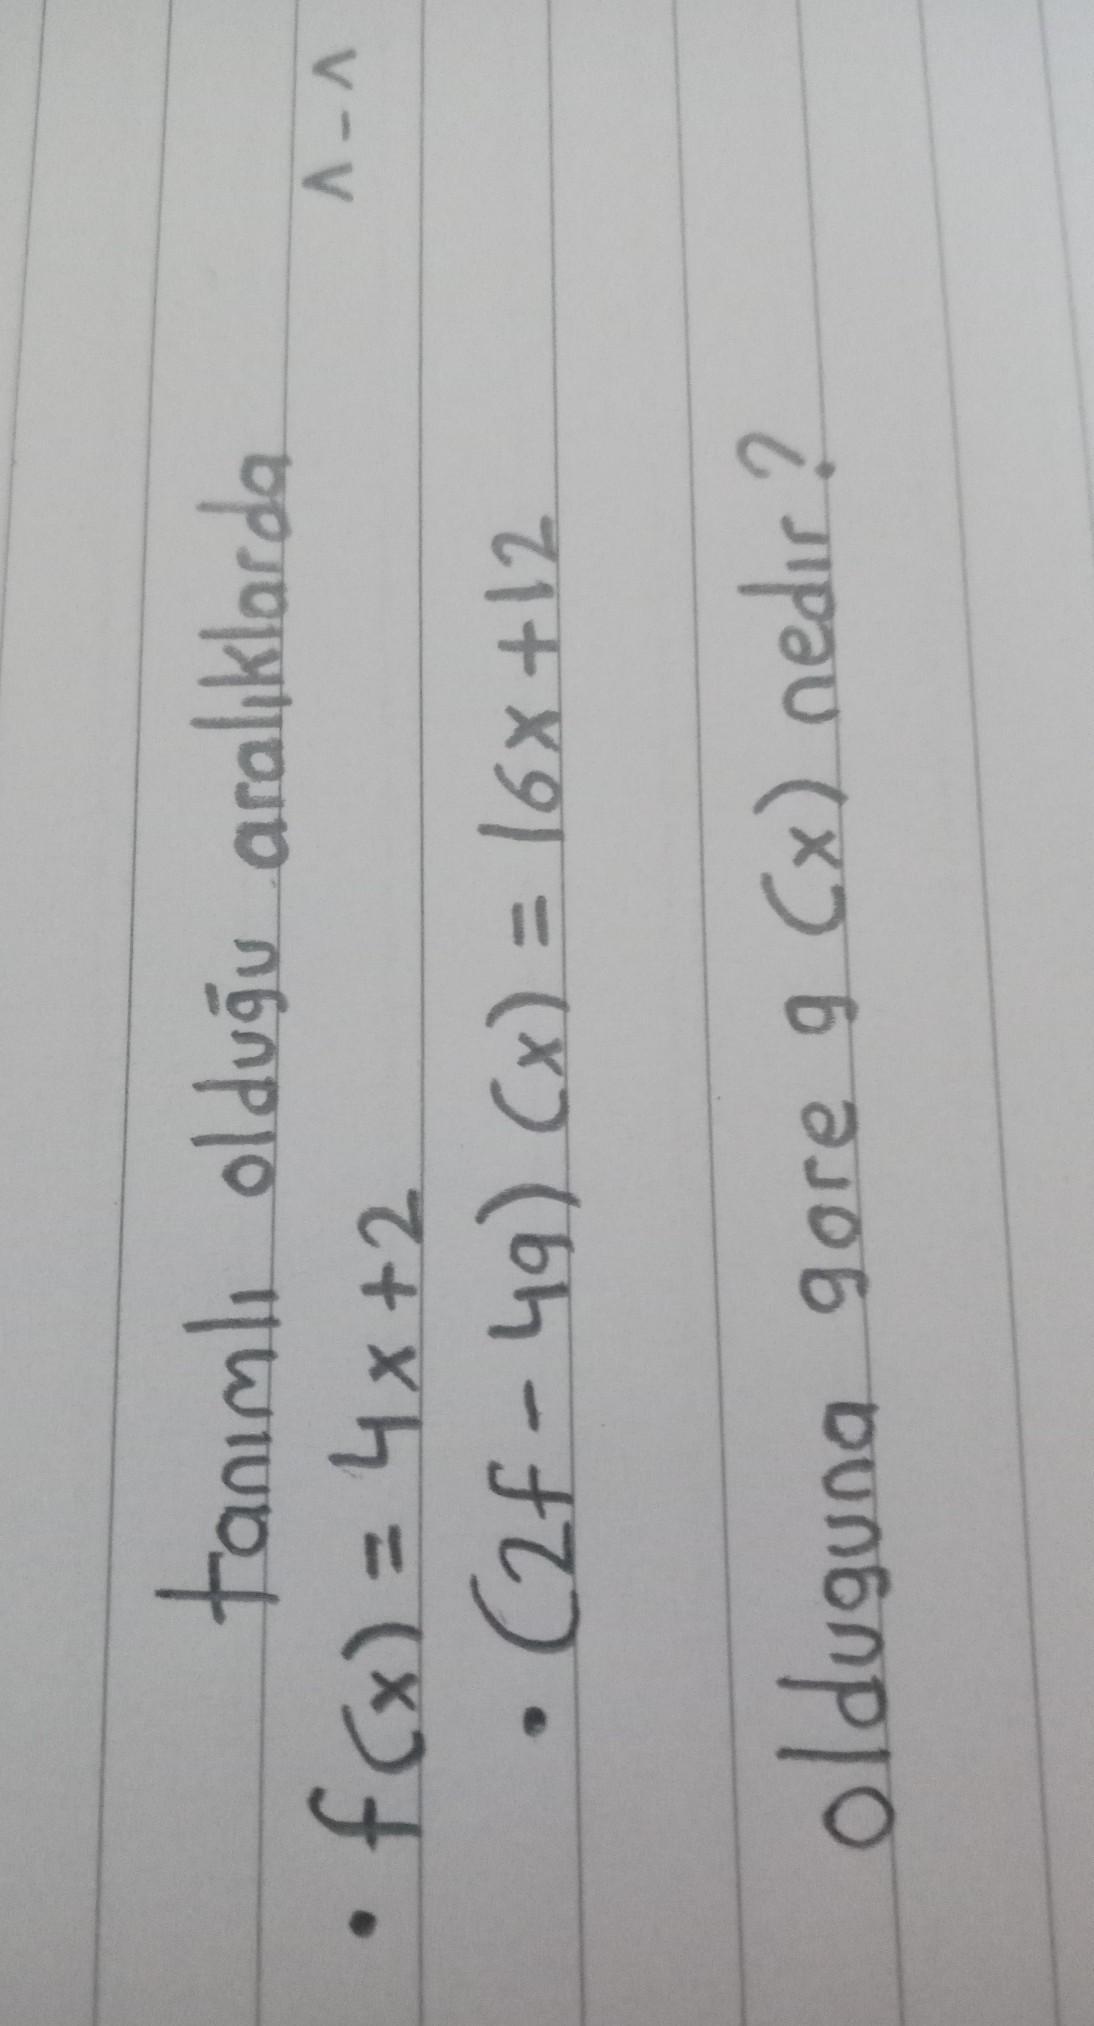 tanımlı olduğu aralıklarda
^-^
• f(x) = 4x+2
• (2f-4g) (x) = 16x+12
olduguna gore g (x) nedır?